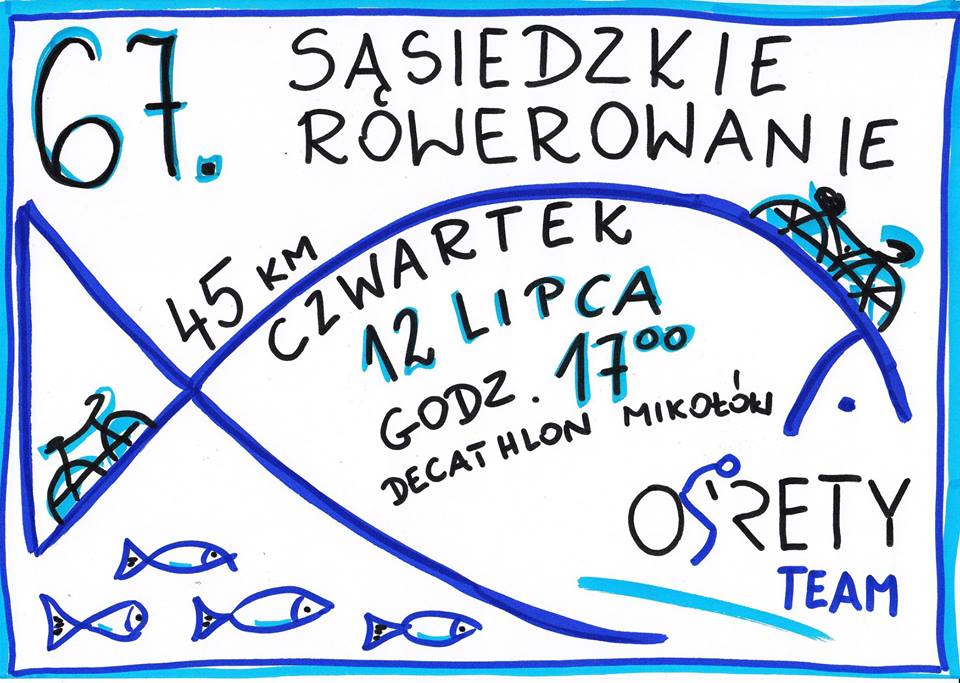 67. SĄSIEDZKIE
RÓWEROWANIE
45 KM
CZWARTEK
12 LIPCA
GODZ. 17⁰⁰
DECATHLON MIKOŁÓW
OŚRETY
TEAM